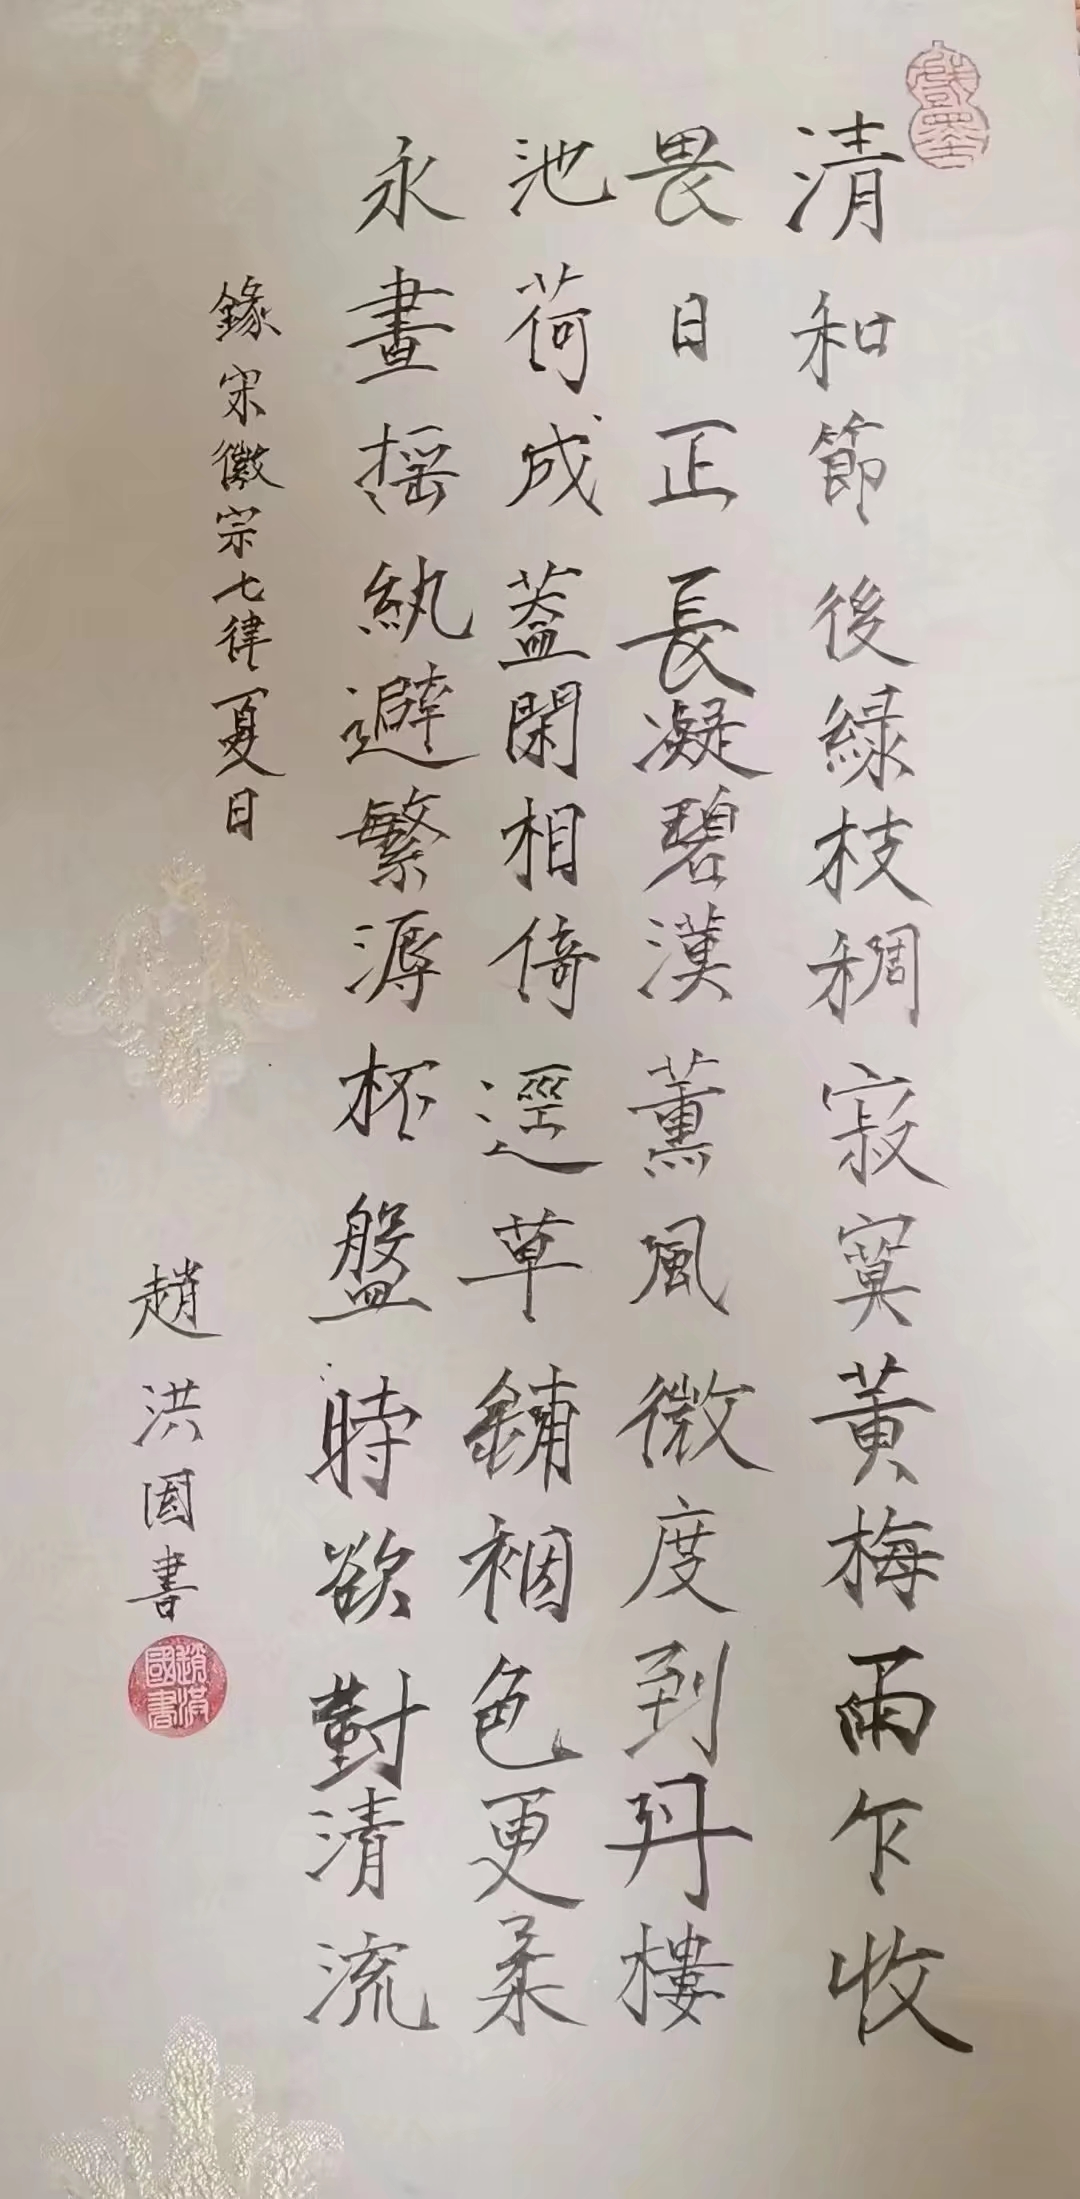 戲墨
清和節後綠枝稠寂寞黃梅雨乍收
畏日正長凝碧漢薰風微度到丹樓
池荷成蓋閑相倚逕草鋪裀色更柔
永晝搖紈避繁溽杯盤時欲對清流
錄宋徽宗七律夏日
趙洪国書
趙洪國書